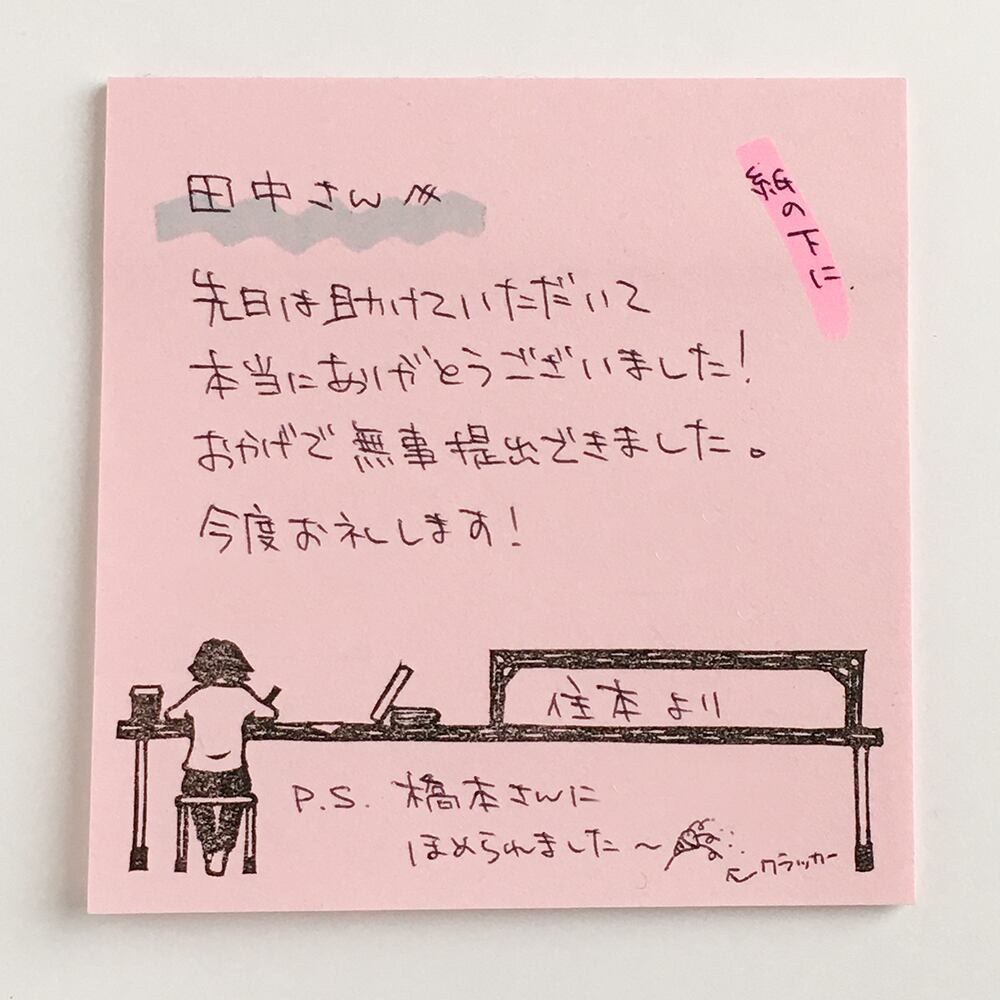 田中さんへ
紙の下に.
先日は助けていただいて
本当にありがとうございました!
おかげで無事提出できました。
今度お礼します!
住本より
P.S. 橋本さんに
ほめられました〜
クラッカー